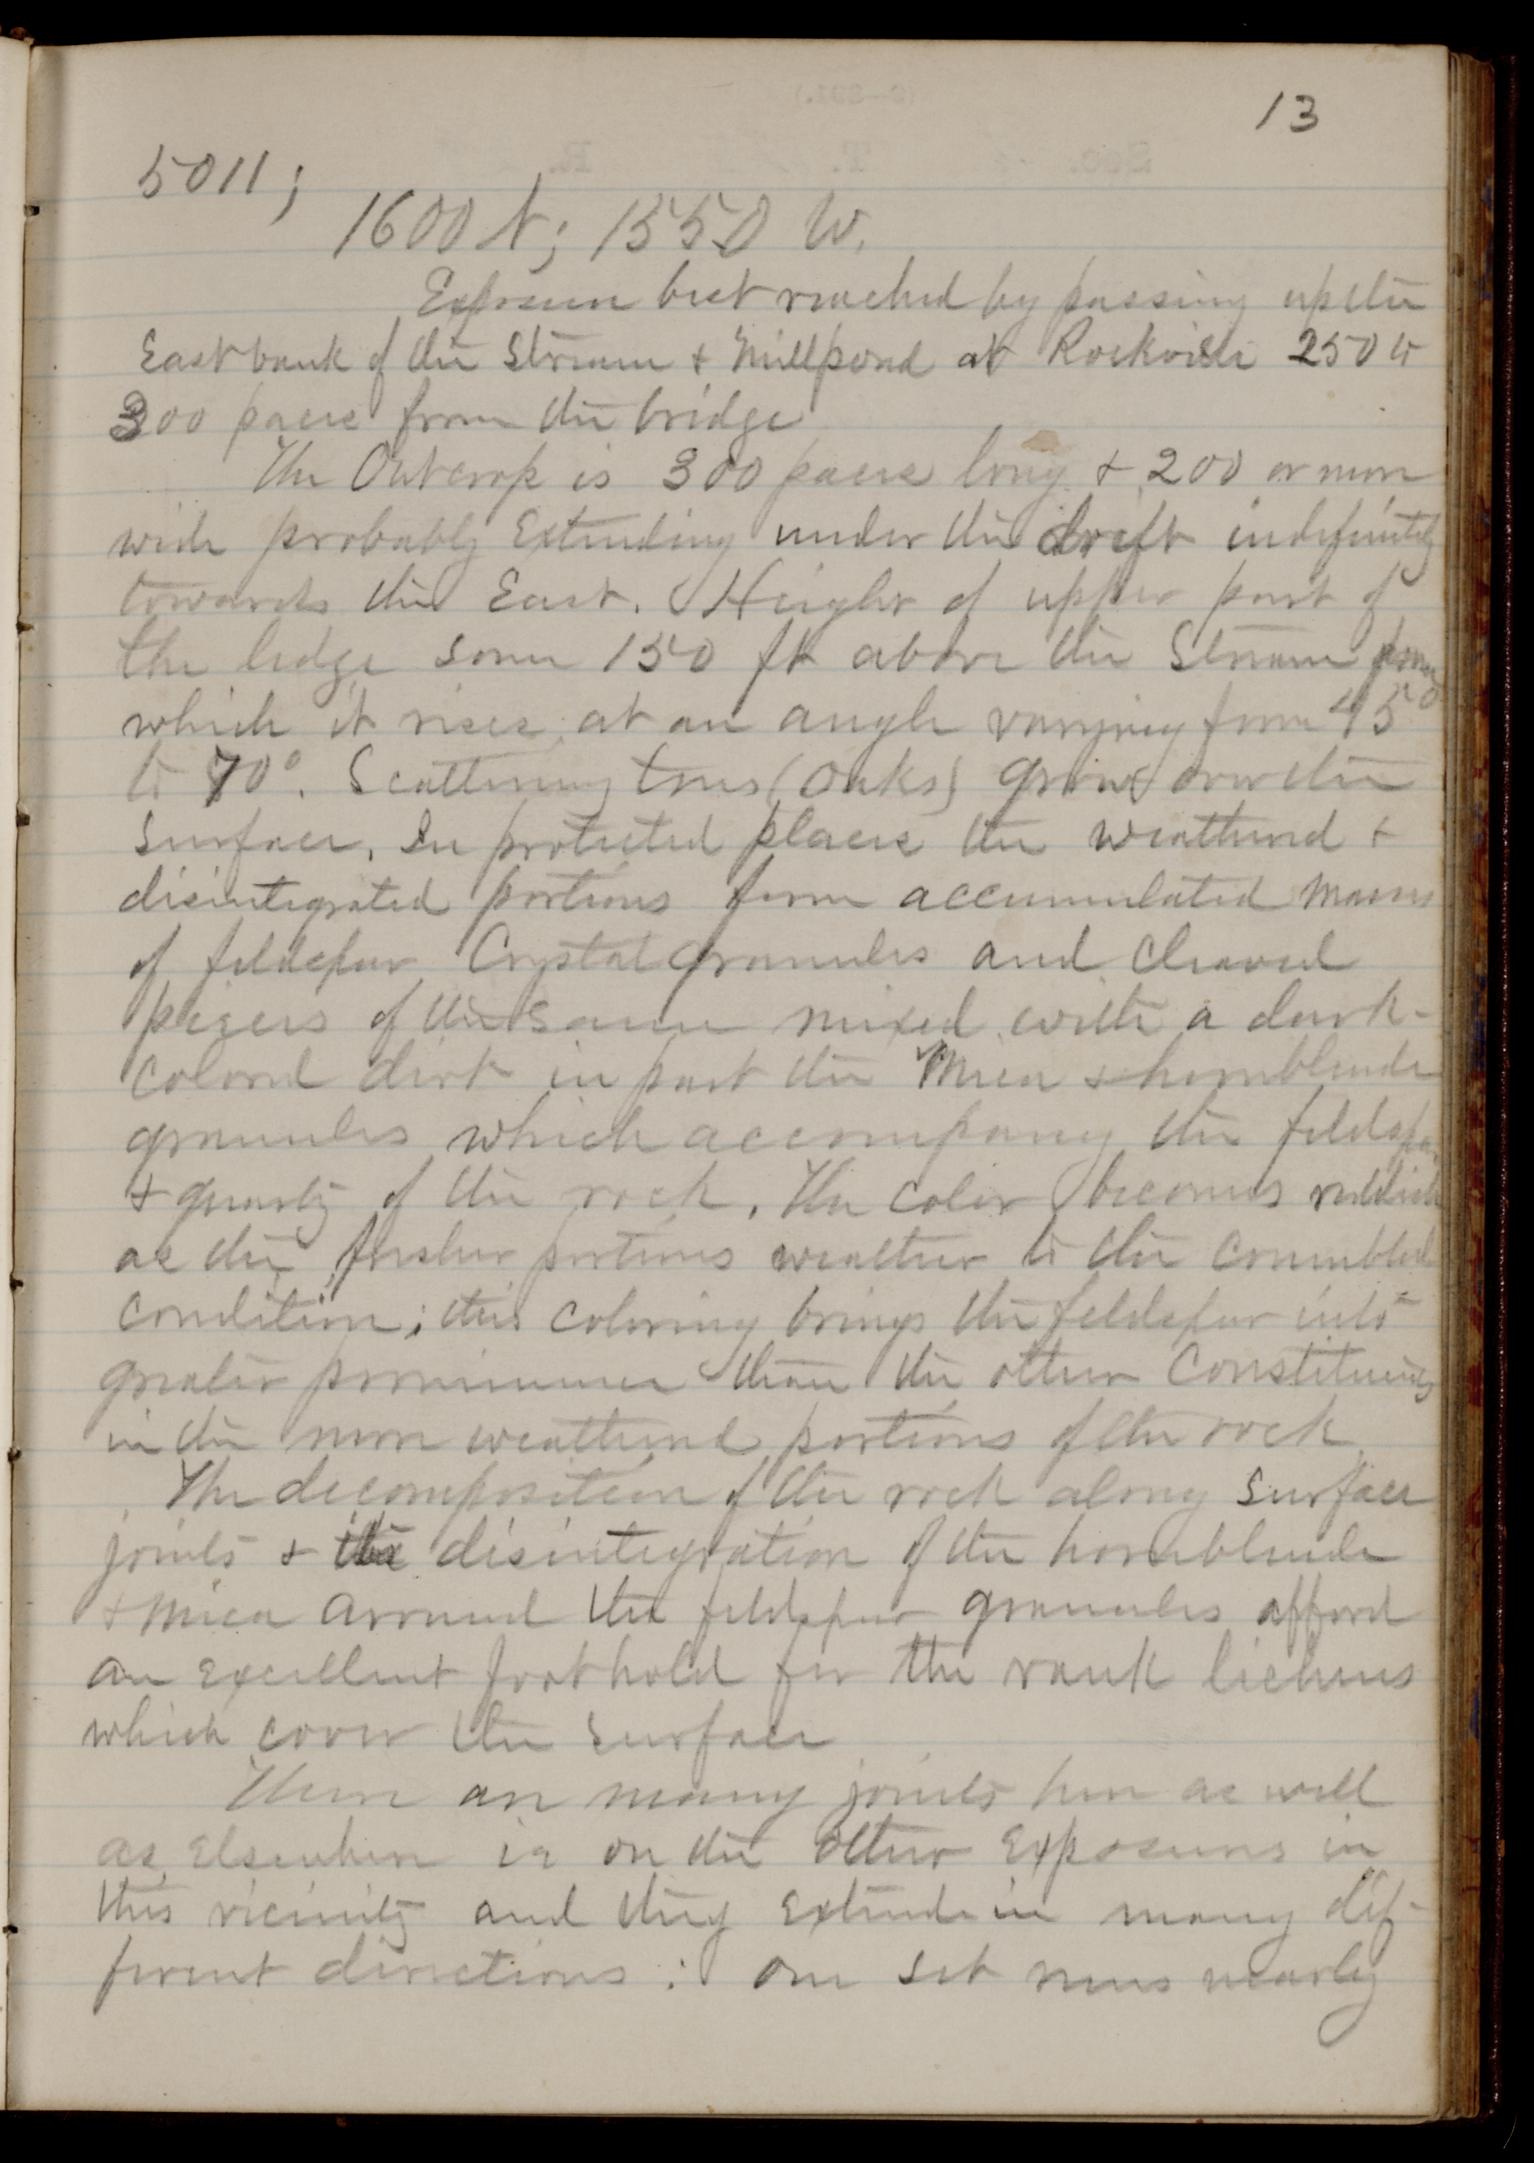 13
5011;
1600 N; 1550 W.
Exposure best reached by passing up the
East bank of the Stream & Millpond at Rockville 250 to
300 paces from the bridge
The Outcrop is 300 paces long & 200 or more
wide probably Extending under the drift indefinitely
towards the East. Height of upper part of
the ledge some 150 ft above the Stream from
which it rises at an angle varying from 45°
to 70°. Scattering trees (oaks) grow over the
surface. In protected places the weathered &
disintegrated portions form accumulated masses
of feldspar Crystal granules and cleaved
pieces of the same mixed with a dark-
colored dirt in part the Mica & hornblende
granules which accompany the feldspar
& quartz of the rock. The color becomes reddish
as the fresher portions weather to the crumbled
condition; this coloring brings the feldspar into
greater prominence than the other Constituents
in the more weathered portions of the rock
The decomposition of the rock along surface
joints & the disintegration of the hornblende
& mica around the feldspar granules afford
an excellent foothold for the rank lichens
which cover the surface
There are many joints here as well
as Elsewhere in on the other Exposures in
this vicinity and they extend in many dif-
ferent directions: one set runs nearly